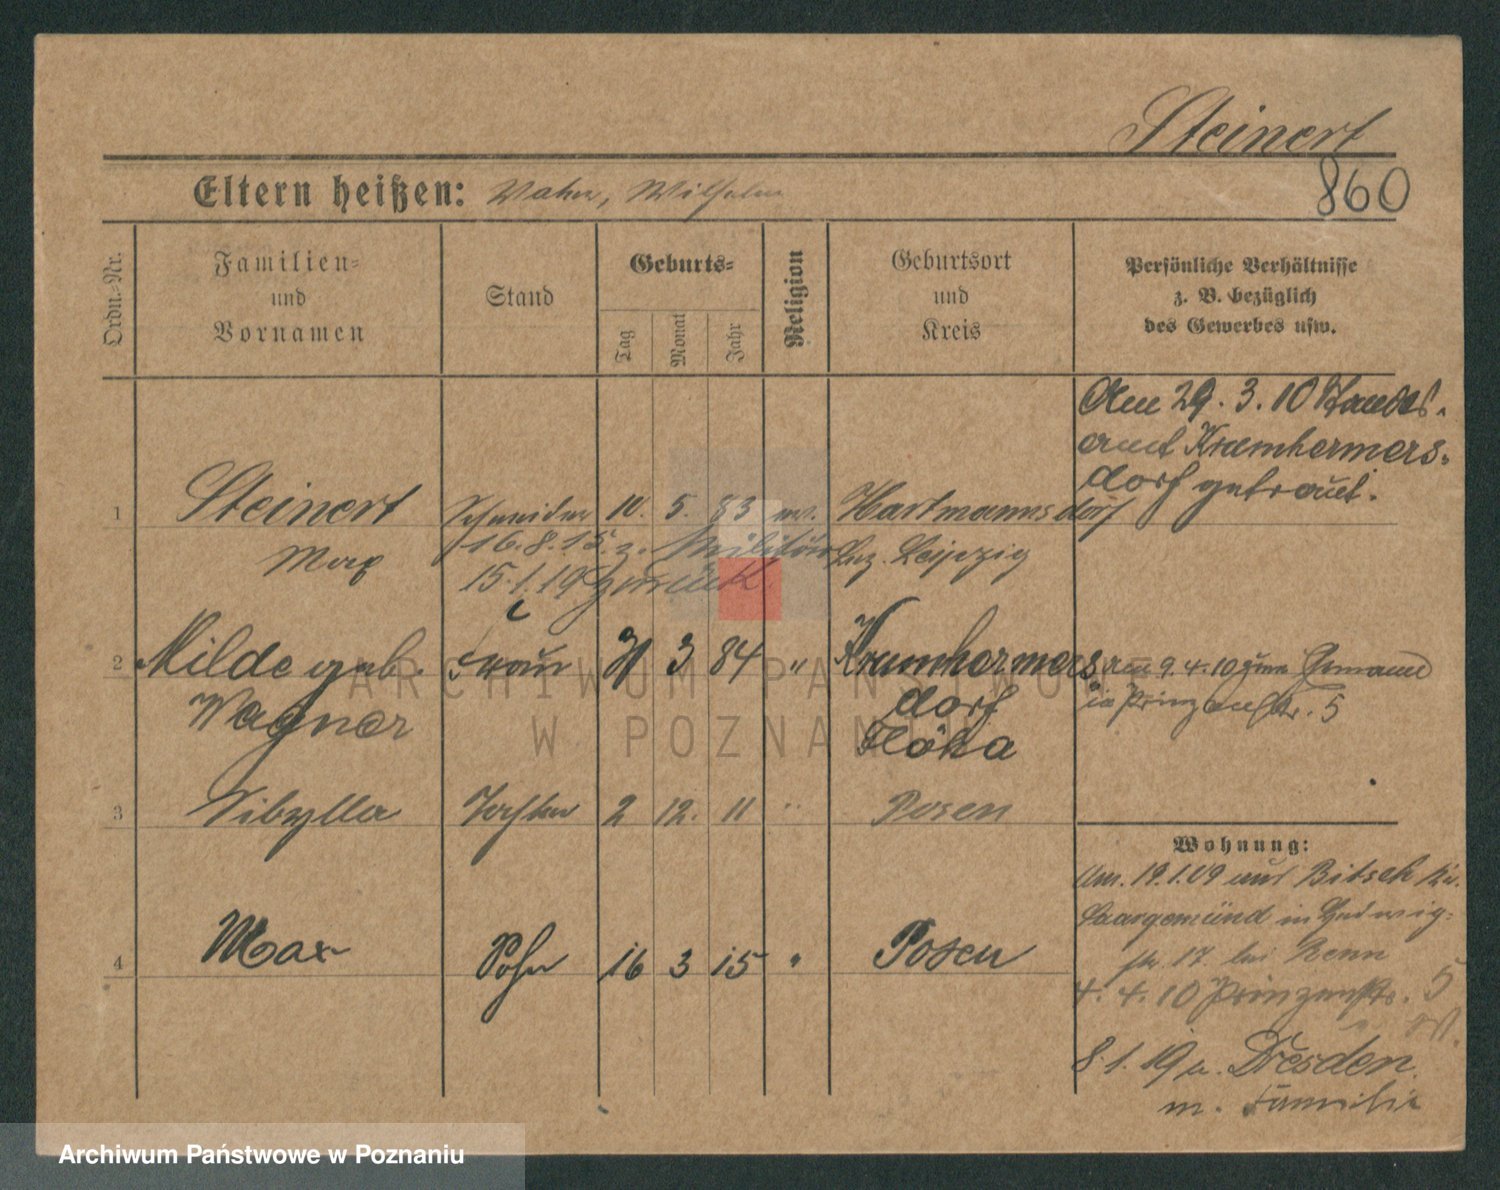 Steinert
860
Eltern heißen: Vater, Wilhelm
Ordn.-Nr.
Familien-
und
Vornamen
Stand
Geburts-
Tag
Monat
Jahr
Religion
Geburtsort
und
Kreis
Persönliche Verhältnisse
z. B. bezüglich
des Gewerbes usw.
Am 29.3.10 Standes-
amt Krumhermers-
dorf getraut.
1 Steinert Schneider 10. 5. 83 ev. Hartmannsdorf
Max 16.8.15 z. Militär Bez. Leipzig
15.1.19 zurück
2 Milda geb. Frau 31 3 84 " Krumhermers am 9.4.10 zum Ehemann
Wagner dorf in Prinzenstr. 5
Flöha
3 Sibylla Tochter 2 12. 11 " Posen
Wohnung:
Am 19.1.09 aus Bitsch Kr.
Saargemünd in Ludwig-
str. 17 bei Renn
4 Max Sohn 16 3 15 " Posen
4.4.10 Prinzenstr. 5
8.1.19 n. Dresden
m. Familie
ARCHIWUM PAŃSTWOWE
W POZNANIU
Archiwum Państwowe w Poznaniu